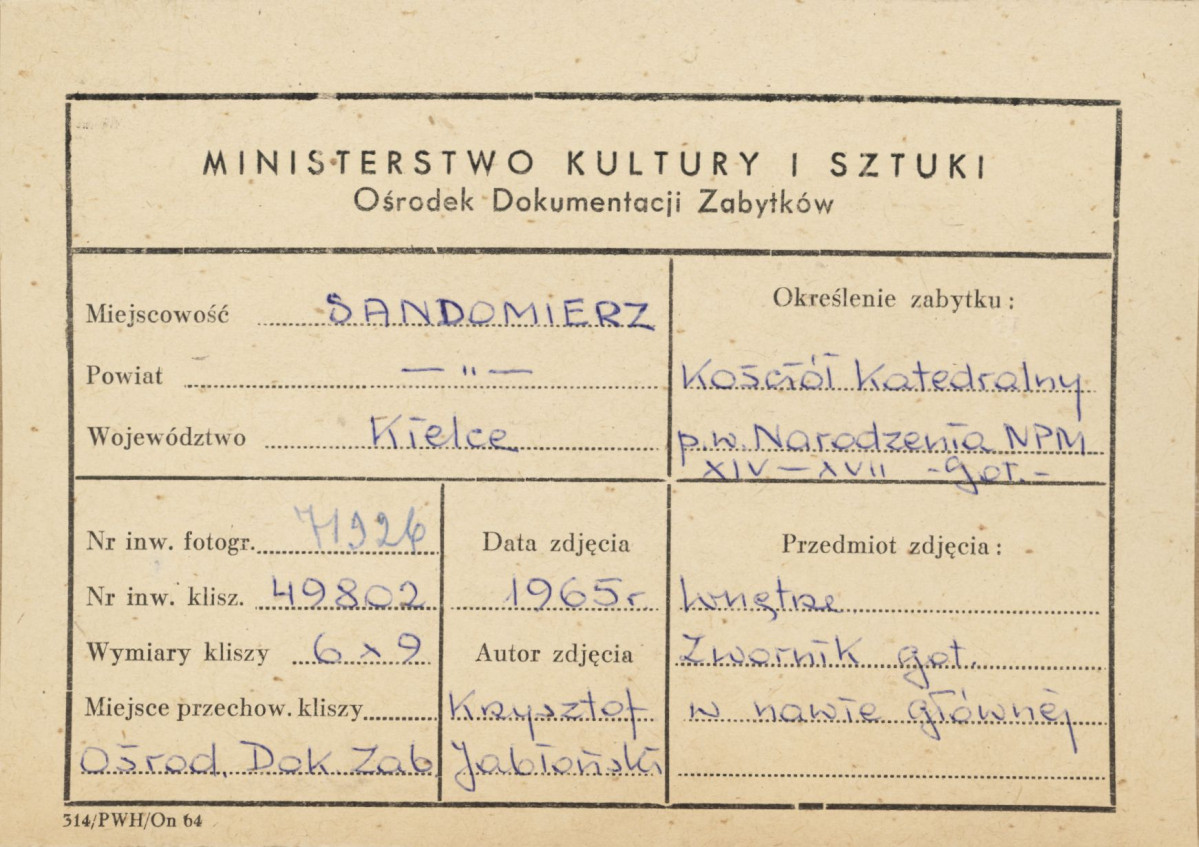 MINISTERSTWO KULTURY I SZTUKI
Ośrodek Dokumentacji Zabytków
Miejscowość SANDOMIERZ
Powiat — " —
Województwo Kielce
Określenie zabytku:
Kościół Katedralny
p.w. Narodzenia NPM
XIV — XVII - got. -
Nr inw. fotogr. 71926
Nr inw. klisz. 49802
Wymiary kliszy 6 x 9
Miejsce przechow. kliszy
Ośrod. Dok Zab
Data zdjęcia
1965 r
Autor zdjęcia
Krzysztof
Jabłoński
Przedmiot zdjęcia:
Wnętrze
Zwornik got.
w nawie głównej
314/PWH/On 64